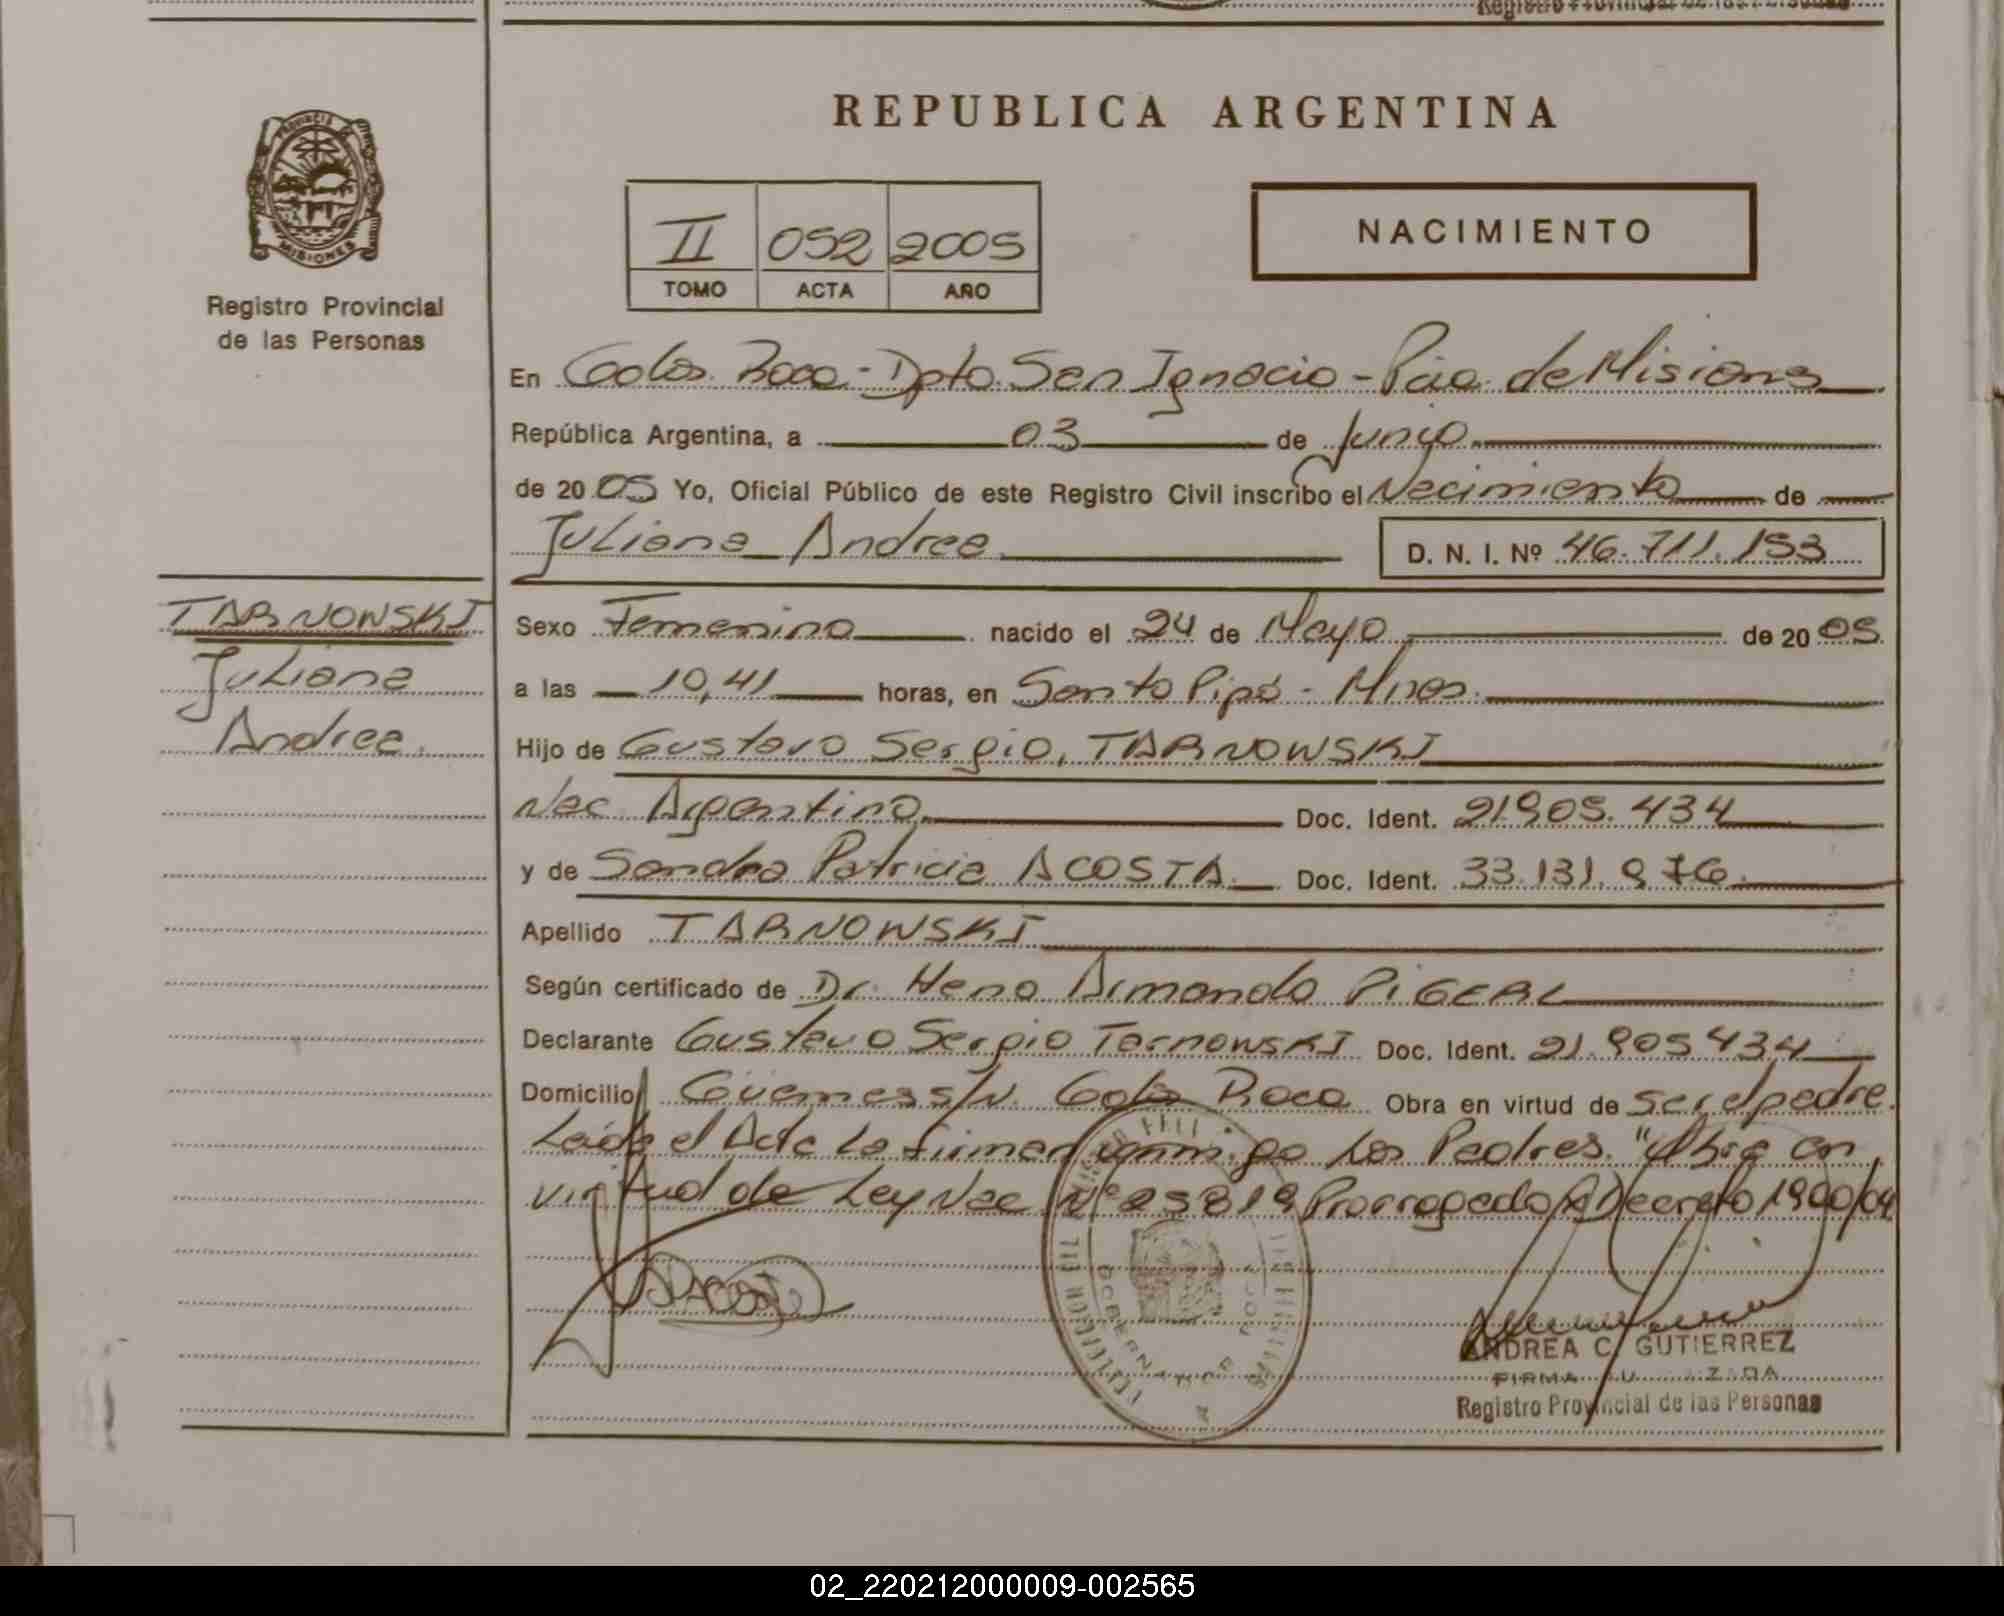 Registro Provincial de las Personas
REPUBLICA ARGENTINA
PROVINCIA
MISIONES
Registro Provincial
de las Personas
II 052 2005
TOMO ACTA AÑO
NACIMIENTO
En Gdor. Roca - Dpto. San Ignacio - Pcia. de Misiones
República Argentina, a 03 de Junio
de 2005 Yo, Oficial Público de este Registro Civil inscribo el Nacimiento de
Juliana Andrea D. N. I. Nº 46.711.153
TARNOWSKI
Juliana
Andrea.
Sexo Femenino nacido el 24 de Mayo de 2005
a las 10,41 horas, en Santo Pipó - Mnes.
Hijo de Gustavo Sergio, TARNOWSKI
Nac. Argentino Doc. Ident. 21.905.434
y de Sandra Patricia ACOSTA Doc. Ident. 33.131.976
Apellido TARNOWSKI
Según certificado de Dr. Armando
Declarante Gustavo Sergio Tarnowski Doc. Ident. 21.905434
Domicilio Güemes s/N. Gdor Roca Obra en virtud de ser el padre.
Leída el Acta la firman conmigo los Padres. "Obra en
virtud de Ley Nac. Nº 25819 Prorrogado Decreto 1900/04
ANDREA C. GUTIERREZ
FIRMA
Registro Provincial de las Personas
02_220212000009-002565